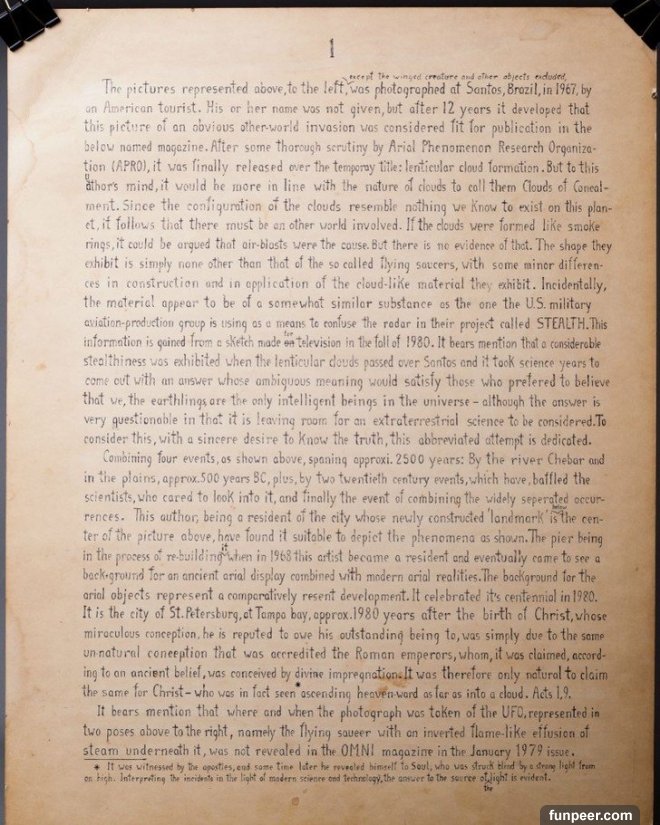 1
except the winged creature and other objects excluded,
The pictures represented above, to the left, was photographed at Santos, Brazil, in 1967, by
an American tourist. His or her name was not given, but after 12 years it developed that
this picture of an obvious other-world invasion was considered fit for publication in the
below named magazine. After some thorough scrutiny by Arial Phenomenon Research Organiza-
tion (APRO), it was finally released over the temporay title: lenticular cloud formation. But to this
athor's mind, it would be more in line with the nature of clouds to call them Clouds of Conceal-
u
ment. Since the configuration of the clouds resemble nothing we know to exist on this plan-
et, it follows that there must be an other world involved. If the clouds were formed like smoke
rings, it could be argued that air-blasts were the cause. But there is no evidence of that. The shape they
exhibit is simply none other than that of the so called flying saucers, with some minor differen-
ces in construction and in application of the cloud-like material they exhibit. Incidentally,
the material appear to be of a somewhat similar substance as the one the U.S. military
aviation-production group is using as a means to confuse the radar in their project called STEALTH. This
for
information is gained from a sketch made on television in the fall of 1980. It bears mention that a considerable
stealthiness was exhibited when the lenticular clouds passed over Santos and it took science years to
come out with an answer whose ambiguous meaning would satisfy those who prefered to believe
that we, the earthlings, are the only intelligent beings in the universe – although the answer is
very questionable in that it is leaving room for an extraterrestrial science to be considered. To
consider this, with a sincere desire to know the truth, this abbreviated attempt is dedicated.
Combining four events, as shown above, spaning approxi. 2500 years: By the river Chebar and
in the plains, approx. 500 years BC, plus, by two twentieth century events, which have, baffled the
scientists, who cared to look into it, and finally the event of combining the widely seperated occur-
below
rences. This author, being a resident of the city whose newly constructed 'landmark' is the cen-
ter of the picture above, have found it suitable to depict the phenomena as shown. The pier being
it
in the process of re-building when in 1968 this artist became a resident and eventually came to see a
back-ground for an ancient arial display combined with modern arial realities. The background for the
arial objects represent a comparatively resent development. It celebrated it's centennial in 1980.
It is the city of St. Petersburg, at Tampa bay, approx. 1980 years after the birth of Christ, whose
miraculous conception, he is reputed to owe his outstanding being to, was simply due to the same
un-natural conception that was accredited the Roman emperors, whom, it was claimed, accord-
ing to an ancient belief, was conceived by divine impregnation. It was therefore only natural to claim
the same for Christ – who was in fact seen * ascending heaven-ward as far as into a cloud. Acts 1,9.
It bears mention that where and when the photograph was taken of the UFO, represented in
two poses above to the right, namely the flying saucer with an inverted flame-like effusion of
steam underneath it, was not revealed in the OMNI magazine in the January 1979 issue.
* It was witnessed by the apostles, and some time later he revealed himself to Saul, who was struck blind by a strong light from
on high. Interpreting the incidents in the light of modern science and technology, the answer to the source of light is evident.
the
funpeer.com